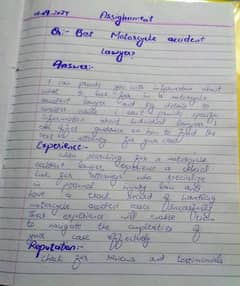 Assignment
Q:- Best Motorcycle accident
lawyer?
Answer:-
I can provide you with information about
what to look for in a motorcycle
accident lawyer and
I can't provide specific
information about individual lawyers, I
can offer guidance on how to find the
best for your case
Experience:-
When searching for a motorcycle
accident lawyer, experience is
look for attorneys who specialize
in personal injury law and
have a track record of handling
motorcycle accident cases
their experience will enable them
to navigate the complexities of
your case effectively
Reputation:-
Check for reviews and testimonials